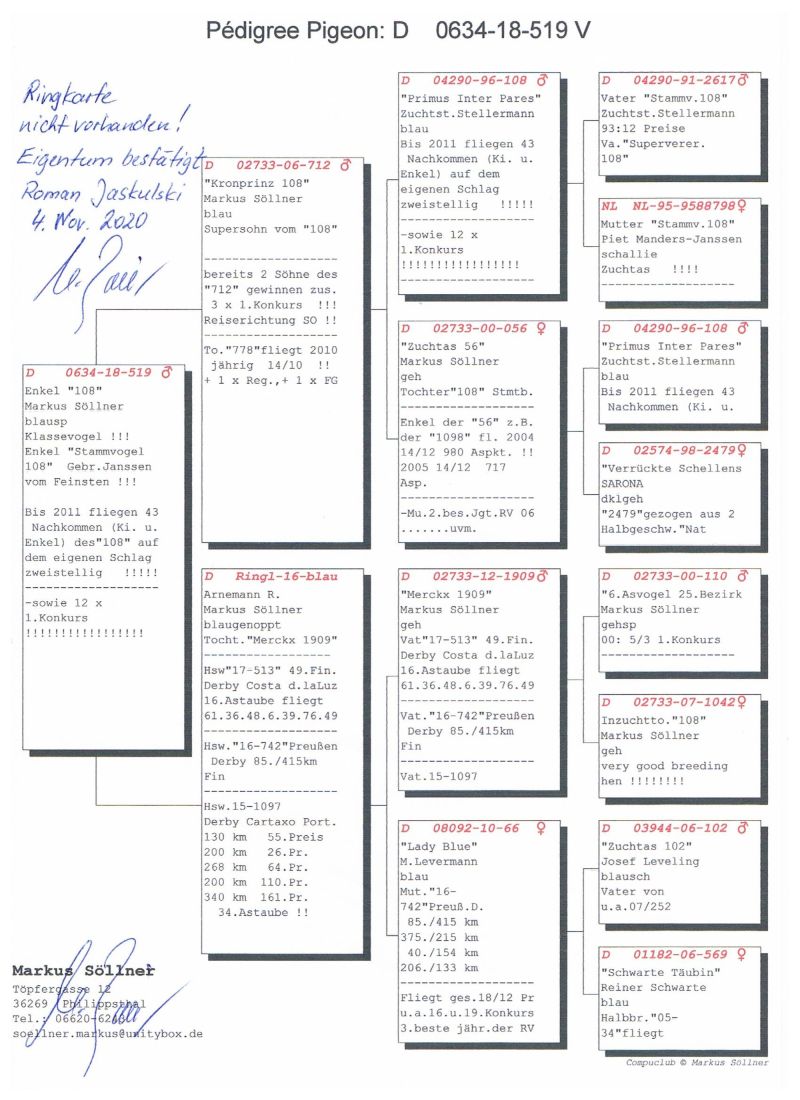 Pédigree Pigeon: D 0634-18-519 V
Ringkarte
nicht vorhanden!
Eigentum bestätigt
Roman Jaskulski
4. Nov. 2020
D 0634-18-519 ♂
Enkel "108"
Markus Söllner
blausp
Klassevogel !!!
Enkel "Stammvogel
108" Gebr.Janssen
vom Feinsten !!!
Bis 2011 fliegen 43
Nachkommen (Ki. u.
Enkel) des"108" auf
dem eigenen Schlag
zweistellig !!!!!
--------------------
-sowie 12 x
1.Konkurs
!!!!!!!!!!!!!!!!!
D 02733-06-712 ♂
"Kronprinz 108"
Markus Söllner
blau
Supersohn vom "108"
-------------------
bereits 2 Söhne des
"712" gewinnen zus.
3 x 1.Konkurs !!!
Reiserichtung SO !!
-------------------
To."778"fliegt 2010
jährig 14/10 !!
+ 1 x Reg.,+ 1 x FG
D Ringl-16-blau
Arnemann R.
Markus Söllner
blaugenoppt
Tocht."Merckx 1909"
-------------------
Hsw"17-513" 49.Fin.
Derby Costa d.laLuz
16.Astaube fliegt
61.36.48.6.39.76.49
-------------------
Hsw."16-742"Preußen
Derby 85./415km
Fin
-------------------
Hsw.15-1097
Derby Cartaxo Port.
130 km 55.Preis
200 km 26.Pr.
268 km 64.Pr.
200 km 110.Pr.
340 km 161.Pr.
34.Astaube !!
D 04290-96-108 ♂
"Primus Inter Pares"
Zuchtst.Stellermann
blau
Bis 2011 fliegen 43
Nachkommen (Ki. u.
Enkel) auf dem
eigenen Schlag
zweistellig !!!!!
-------------------
-sowie 12 x
1.Konkurs
!!!!!!!!!!!!!!!!!
-------------------
D 02733-00-056 ♀
"Zuchtas 56"
Markus Söllner
geh
Tochter"108" Stmtb.
-------------------
Enkel der "56" z.B.
der "1098" fl. 2004
14/12 980 Aspkt. !!
2005 14/12 717
Asp.
-------------------
-Mu.2.bes.Jgt.RV 06
.......uvm.
D 02733-12-1909♂
"Merckx 1909"
Markus Söllner
geh
Vat"17-513" 49.Fin.
Derby Costa d.laLuz
16.Astaube fliegt
61.36.48.6.39.76.49
-------------------
Vat."16-742"Preußen
Derby 85./415km
Fin
-------------------
Vat.15-1097
D 08092-10-66 ♀
"Lady Blue"
M.Levermann
blau
Mut."16-
742"Preuß.D.
85./415 km
375./215 km
40./154 km
206./133 km
-------------------
Fliegt ges.18/12 Pr
u.a.16.u.19.Konkurs
3.beste jähr.der RV
D 04290-91-2617♂
Vater "Stammv.108"
Zuchtst.Stellermann
93:12 Preise
Va."Superverer.
108"
NL NL-95-9588798♀
Mutter "Stammv.108"
Piet Manders-Janssen
schallie
Zuchtas !!!!
-------------------
D 04290-96-108 ♂
"Primus Inter Pares"
Zuchtst.Stellermann
blau
Bis 2011 fliegen 43
Nachkommen (Ki. u.
D 02574-98-2479♀
"Verrückte Schellens
SARONA
dklgeh
"2479"gezogen aus 2
Halbgeschw."Nat
D 02733-00-110 ♂
"6.Asvogel 25.Bezirk
Markus Söllner
gehsp
00: 5/3 1.Konkurs
-------------------
D 02733-07-1042♀
Inzuchtto."108"
Markus Söllner
geh
very good breeding
hen !!!!!!!!
D 03944-06-102 ♂
"Zuchtas 102"
Josef Leveling
blausch
Vater von
u.a.07/252
D 01182-06-569 ♀
"Schwarte Täubin"
Reiner Schwarte
blau
Halbbr."05-
34"fliegt
Markus Söllner
Töpfergasse 12
36269 Philippsthal
Tel.: 06620-
soellner.markus@unitybox.de
Compuclub © Markus Söllner